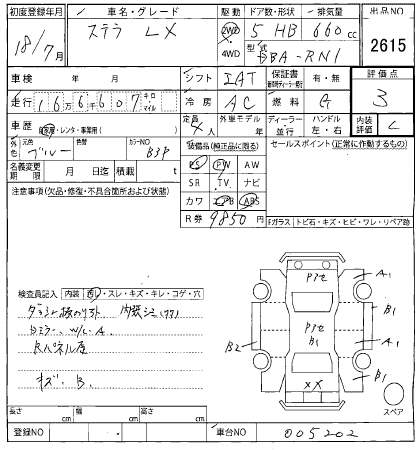 初度登録年月 車名・グレード 駆動 ドア数・形状 排気量 出品NO
18/7月 ステラ LX 2WD 5 HB 660cc 2615
4WD 型式 DBA-RN1
車検 年 月 シフト IAT 保証書 有・無 評価点
走行 166607 キロ マイル 冷房 AC 燃料 G 3
車歴 自家用・レンタ・事業用( ) 定員 4人 外車モデル 年 ディーラー 並行 ハンドル 左・右 内装評価 C
外色 元色 ブルー 色替 カラーNO B3P
装備品(純正品に限る) セールスポイント(正常に作動するもの)
名義変更期限 月 日迄 積載 t PS PW AW
注意事項(欠品・修復・不具合箇所および状態) SR TV ナビ
カワ ABS
R券 9850円 Fガラス トビ石・キズ・ヒビ・ワレ・リペア跡
検査員記入 内装 スレ・キズ・キレ・コゲ・穴
A1
B1
B2 B1 A1
キズ B. XX B1
スペア
長さ cm 幅 cm 高さ cm
登録NO 車台NO 005202